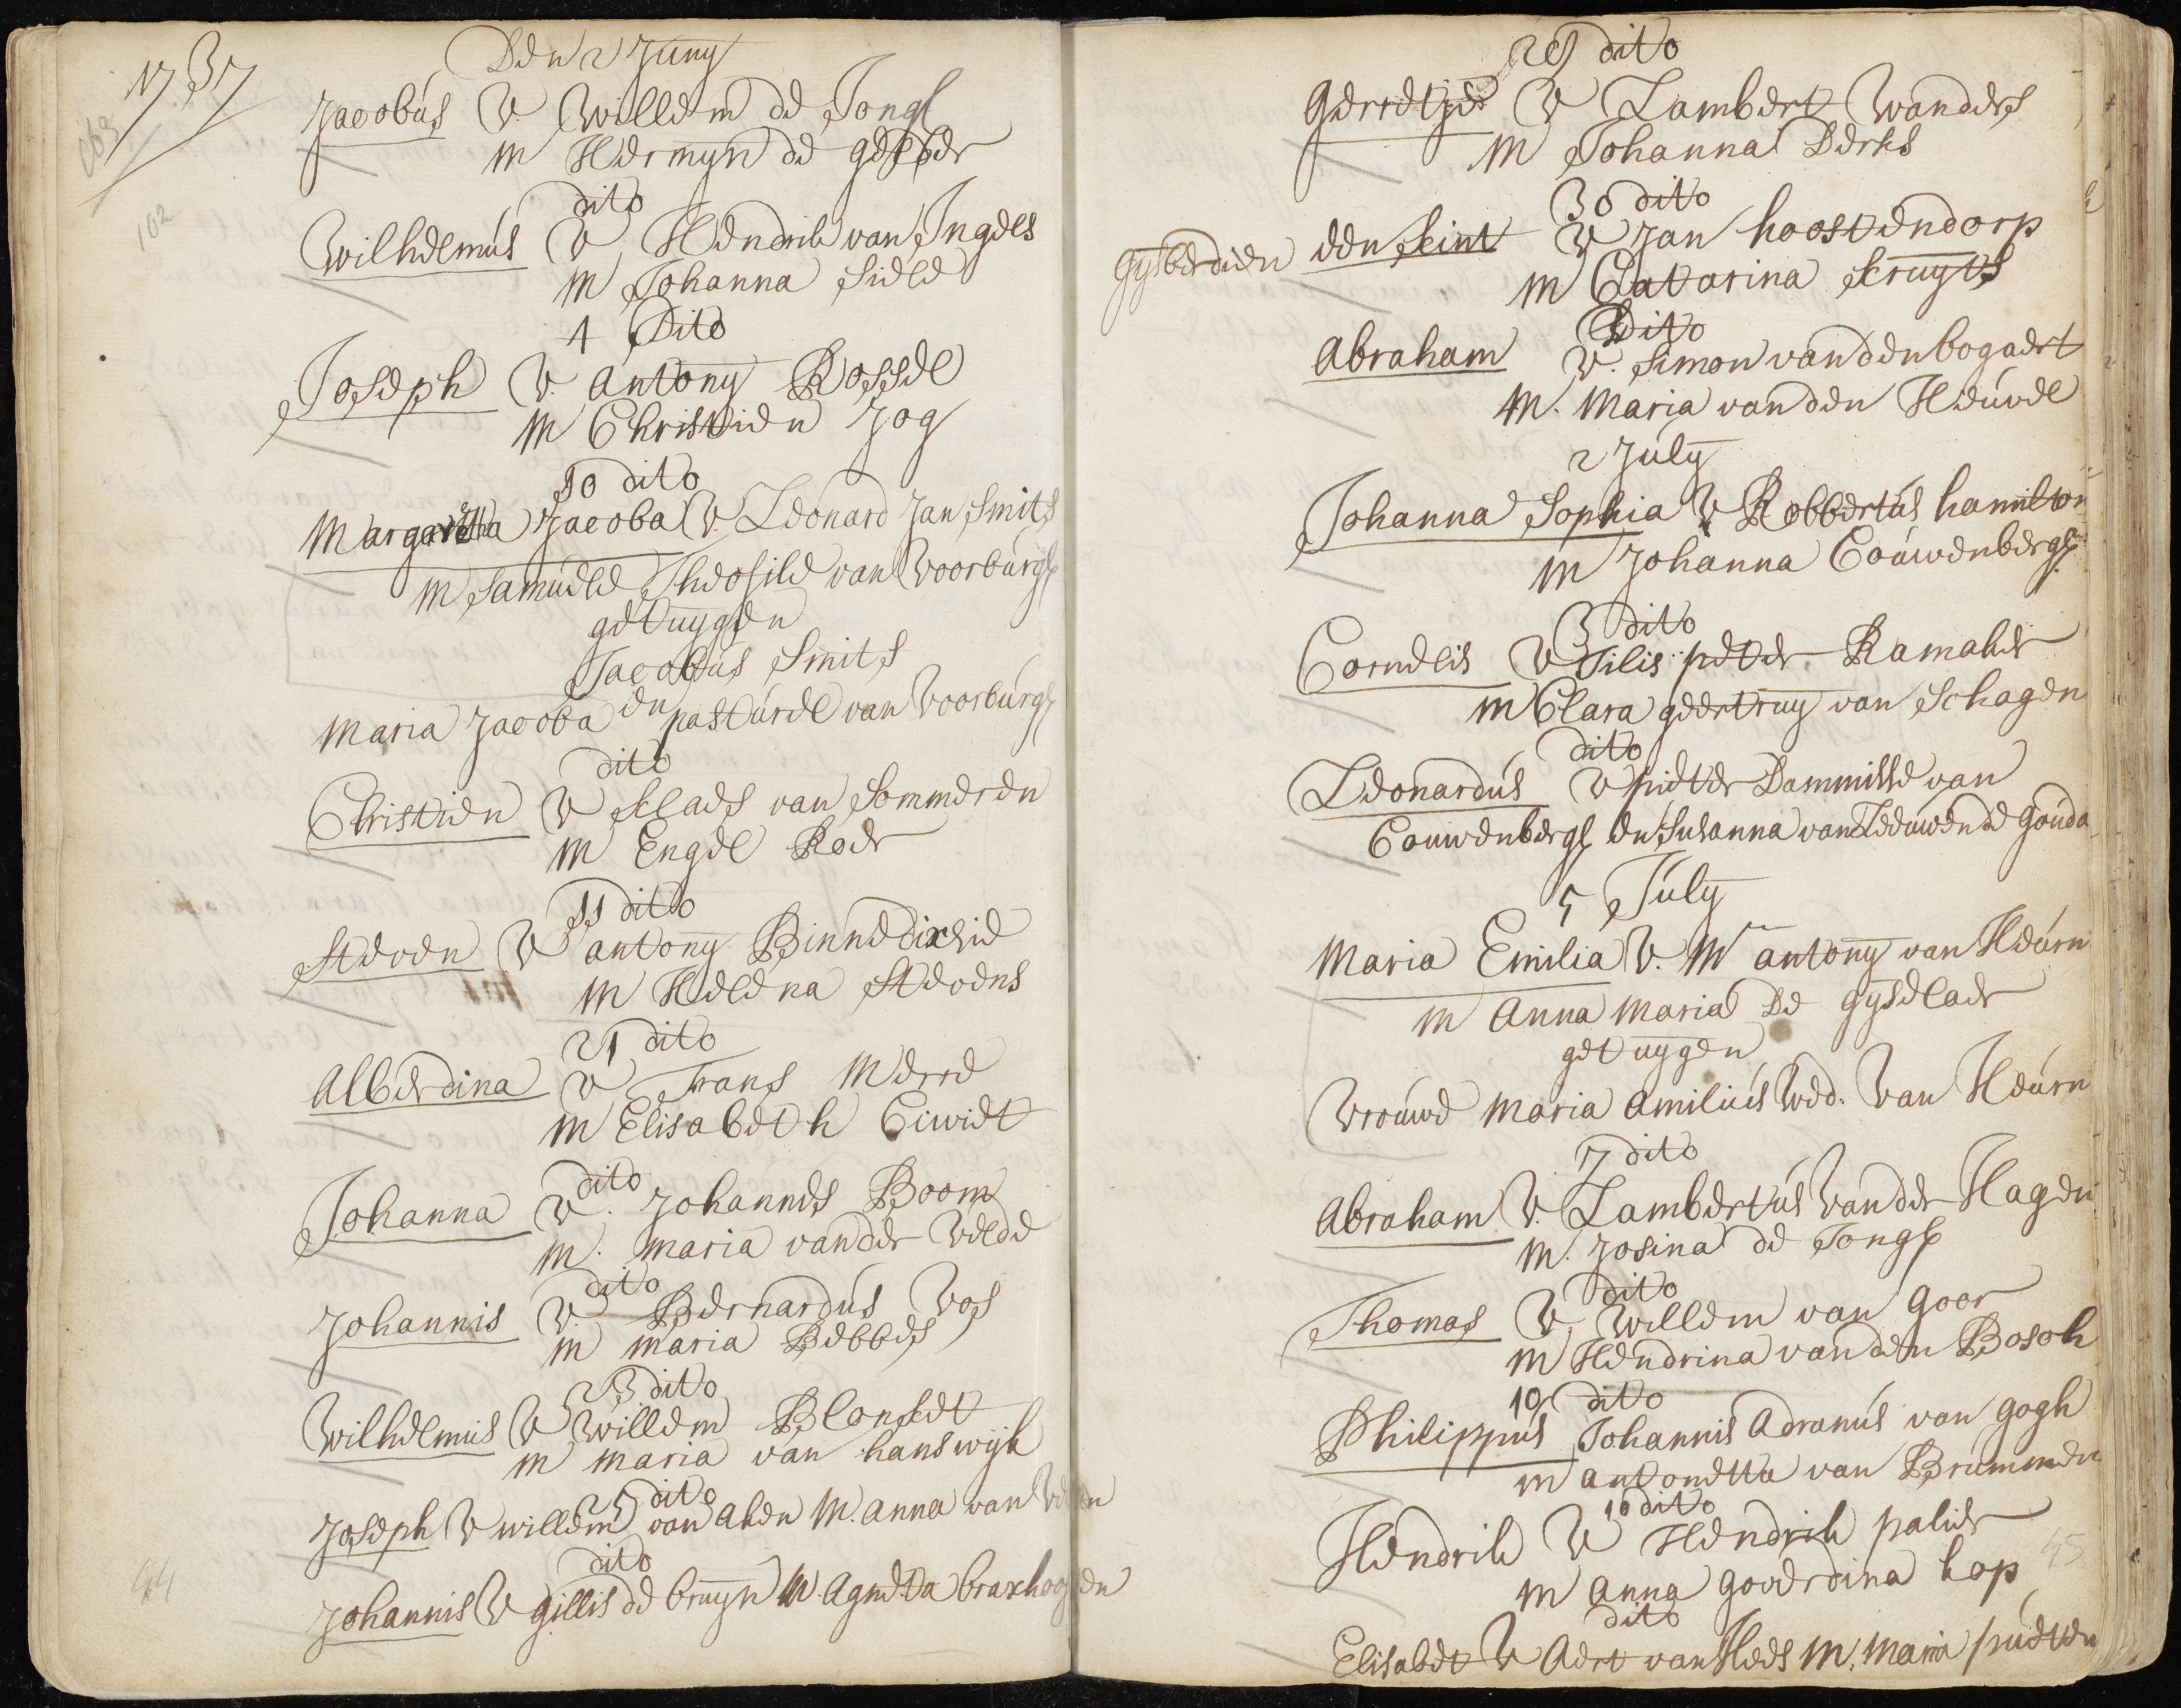 1737
Den 2 Juny
Jacobus V. Willem de Jong
M Hermyn de
dito
Wilhelmus V Hendrik van Ingels
M Johanna
4 Dito
Joseph V. antony Rossel
M Christien Jog
10 dito
Margaretha Jacoba V Leonard Jan Smits
M Samuele Theofile van Voorburg
getuygen
Jacobus Smits
en
Maria Jacoba pasturel van Voorburg
dito
Christien V Klaes van Sommeren
M Engel Roer
11 dito
Steven V antony
M Helena Stevens
21 dito
Alberdina V Frans Merre
M Elisabeth Ciwiet
dito
Johanna V. Johannes Boom
M. maria vander Velde
dito
Johannis V. Bernardus Vos
M maria Bebbes
23 dito
Wilhelmus V Willem Blonket
M maria van hanswijk
25 dito
Joseph V willem van aken M. anna van
dito
44
Johannis V gillis de bruyn M Agneta
29 dito
Gerretje V Lambert Wanders
M Johanna Derks
30 dito
gysberdien den Leint V Jan hoostendorp
M Catarina kruyts
Dito
Abraham V. Simon vanden bogaert
M. Maria vanden Heuvel
2 July
Johanna Sophia V Robbertus hamilton
M Johanna Couwenberg
3 dito
Cornelis V Tilis peter Ramaker
M Clara geertruy van Schagen
dito
Leonardus V pieter Dammisse van
Couwenberg en Susanna van Leeuwen de Gouda
5 July
Maria Emilia V. Mr antony van Heurn
M Anna Maria De gyselaer
getuygen
Vrouwe Maria Amilius Wed. Van Heurn
7 dito
Abraham V. Lambertus Vander Hagen
M. Josina de Jong
dito
Thomas V Willem van Goor
M Hendrina vanden Bosch
10 dito
Philippus Johannis Adranus van gogh
M antonetta van Brummen
10 dito
Hendrik V Hendrik palier
M anna goverdina kop 45
dito
Elisabet V Aert van Hees M. Maria